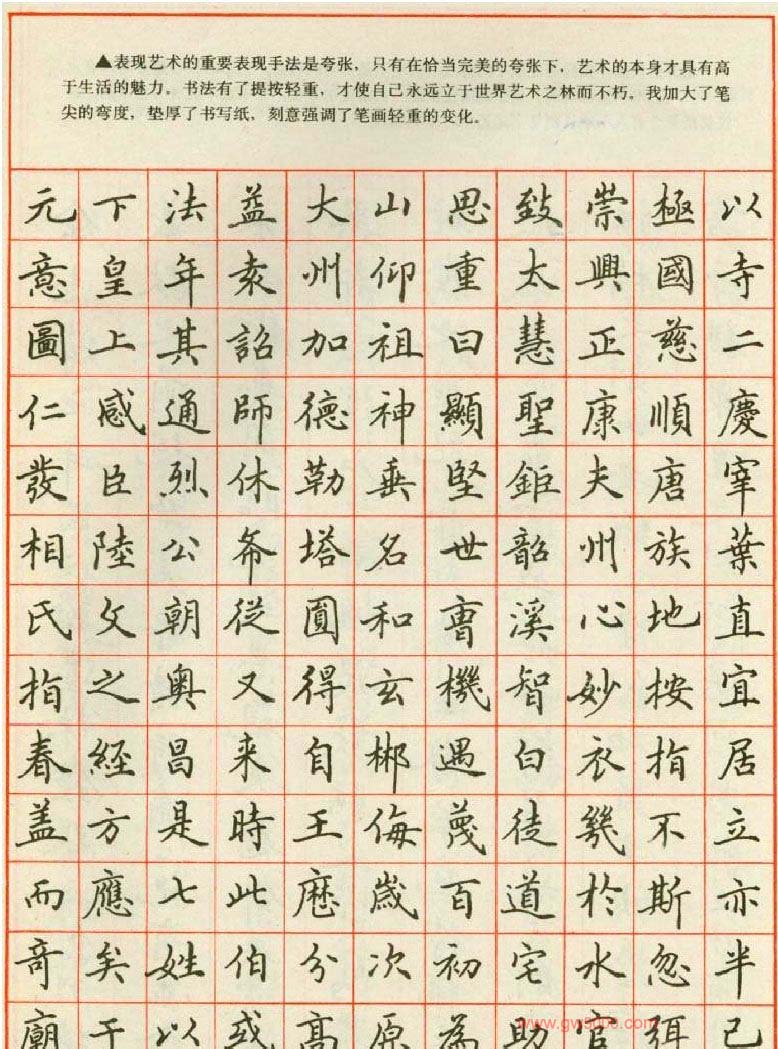 ▲表现艺术的重要表现手法是夸张，只有在恰当完美的夸张下，艺术的本身才具有高
于生活的魅力。书法有了提按轻重，才使自己永远立于世界艺术之林而不朽。我加大了笔
尖的弯度，垫厚了书写纸，刻意强调了笔画轻重的变化。
以寺二慶宰葉直宜居立亦半己
極國慈順唐族地按指不斯忽
崇興正康夫州心妙衣幾於水官
致太慧聖鉅韶溪智白徒道宅助
思重曰顯堅世曹機遇蔑百初為
山仰祖神垂名和玄郴侮歲次原
大州加德勒塔圓得自王歷分高
益袁詔師休從又来時此伯或
法年其通烈公朝奧昌是七姓以
下皇上感臣陸文之經方應矣于
元意圖仁發相氏指春盖而奇廟